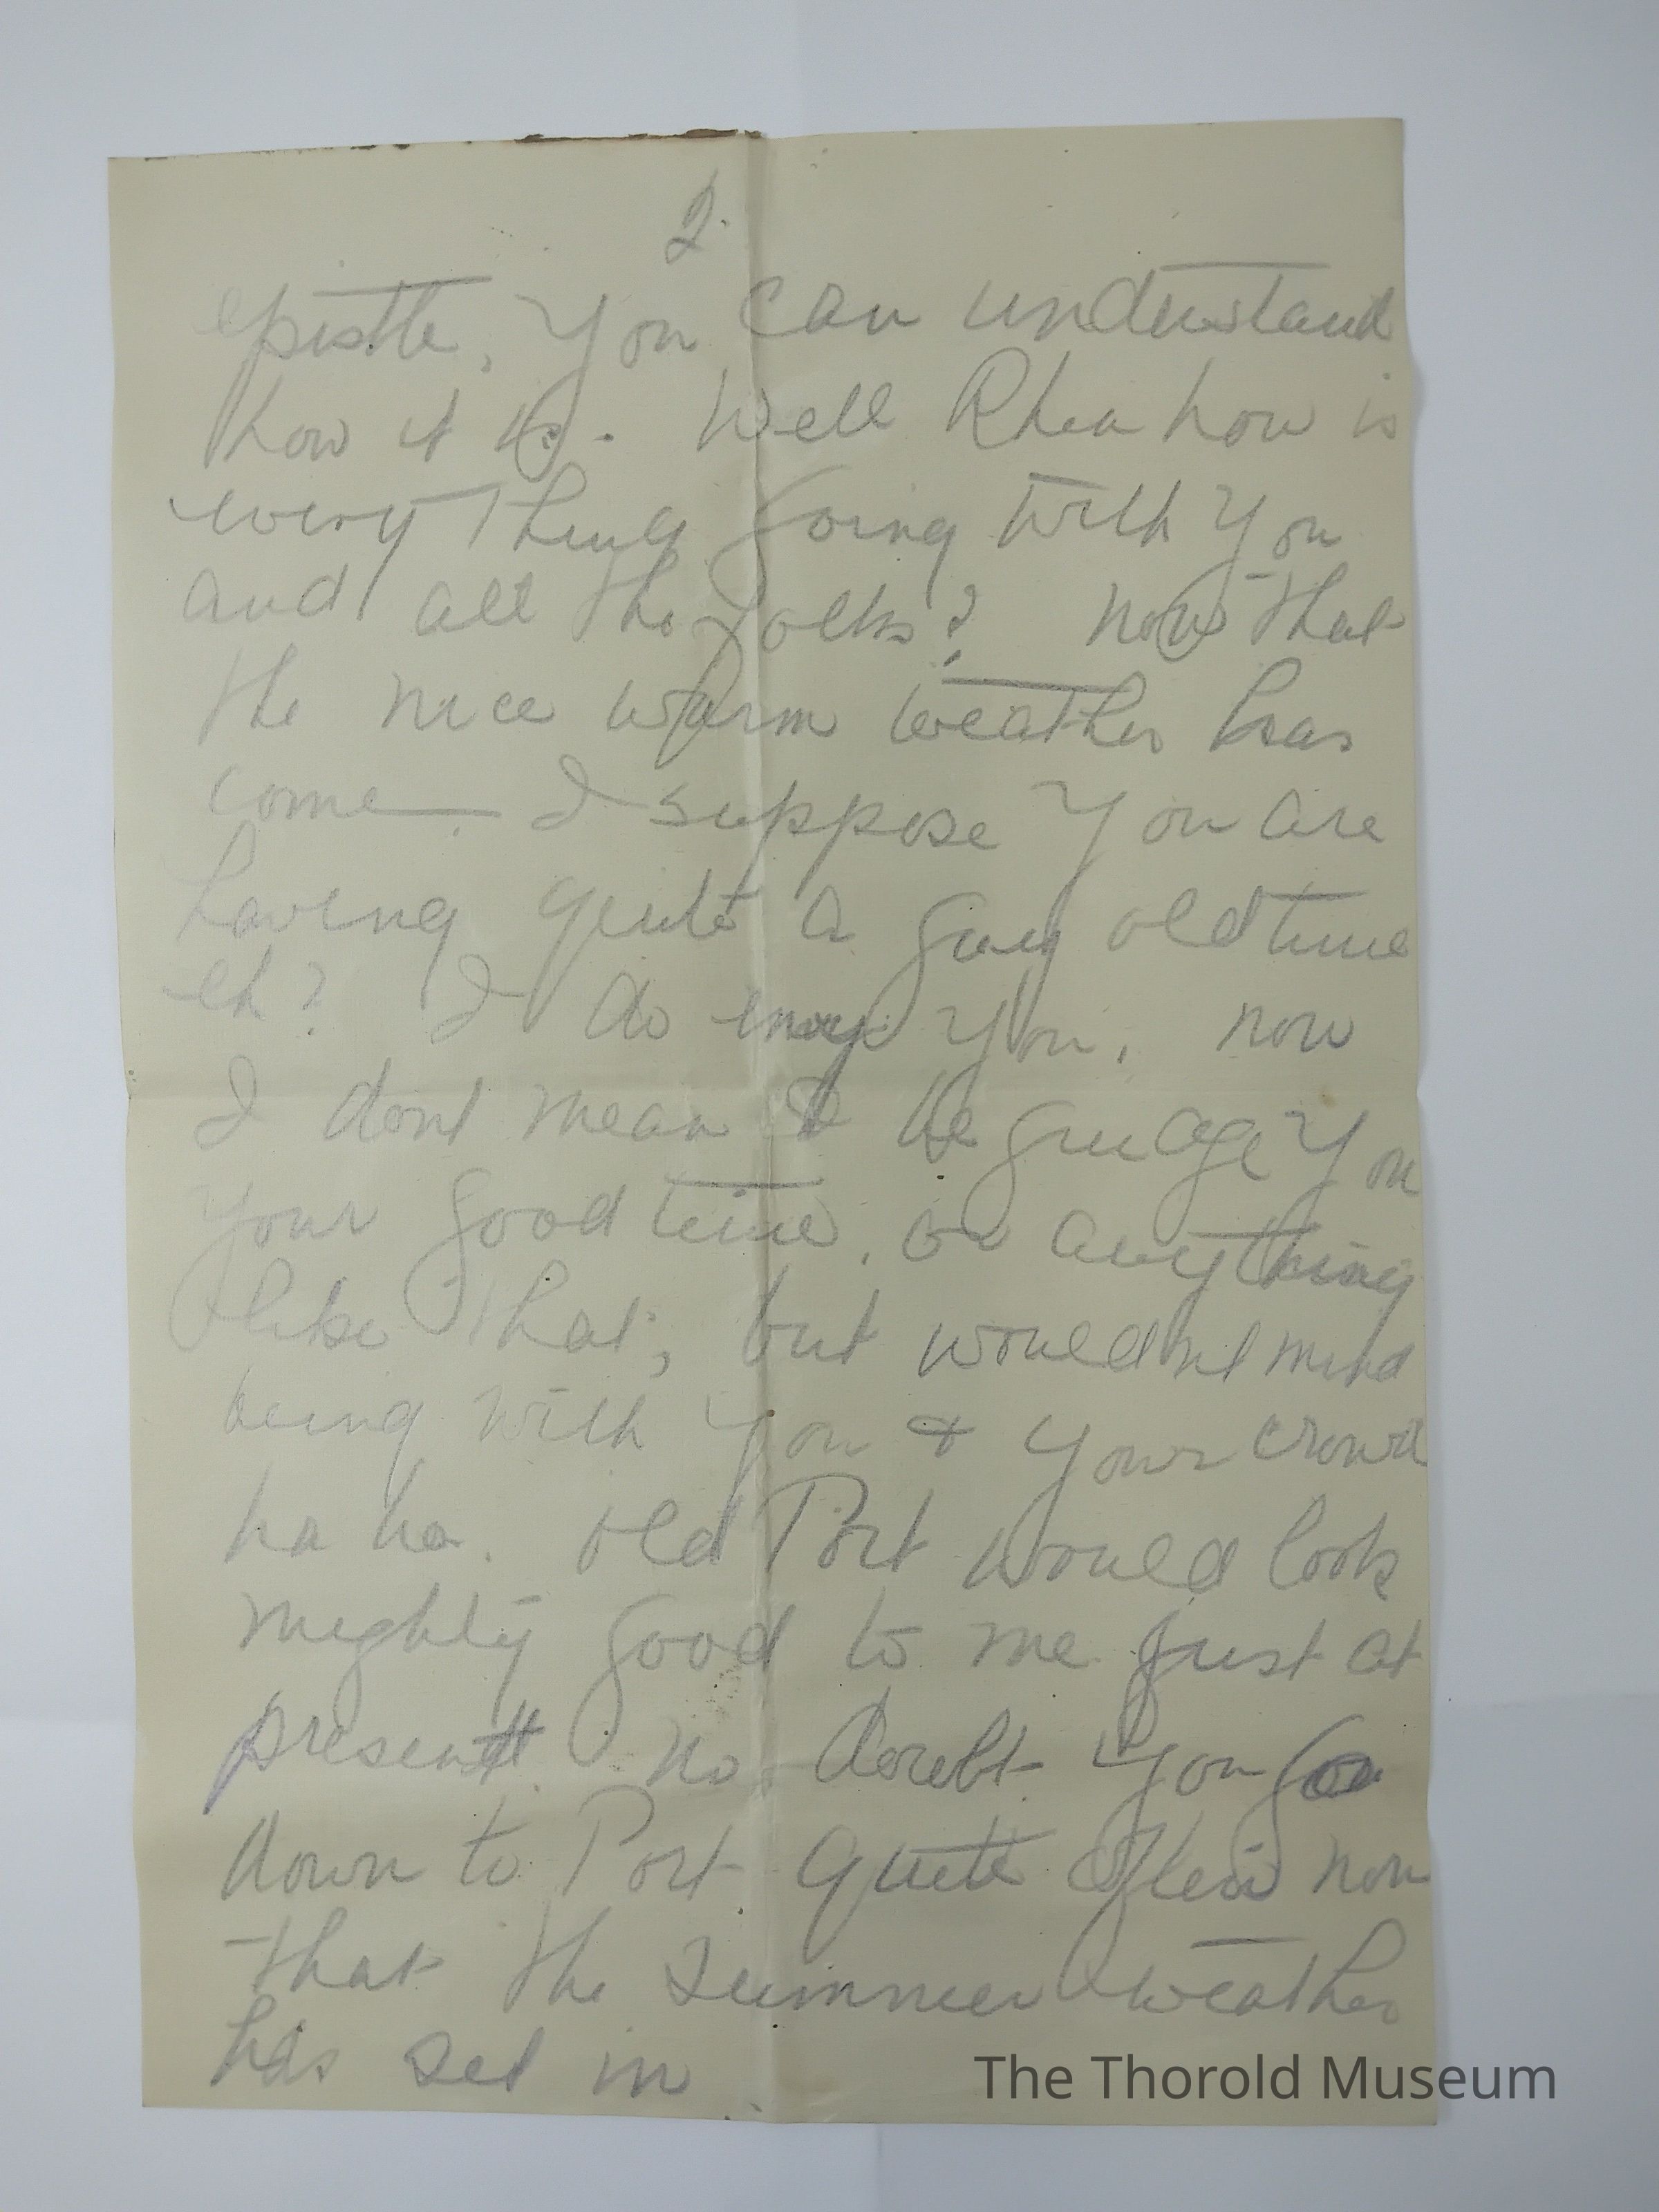 2.
epistle, You can understand
how it is. Well Rhea how is
every thing going with you
and all the folks? Now that
the nice warm weather has
come I suppose you are
having quite a gay old time
eh? I do envy you, now
I dont mean to be grudge you
your good time, or anything
like that, but wouldnt mind
being with you & your crowd
ha ha. Old Port would look
mighty good to me just at
present. No doubt you go
down to Port quite often now
that the summer weather
has set in
The Thorold Museum